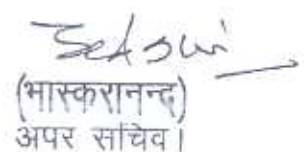 (भास्करानन्द)
अपर सचिव।